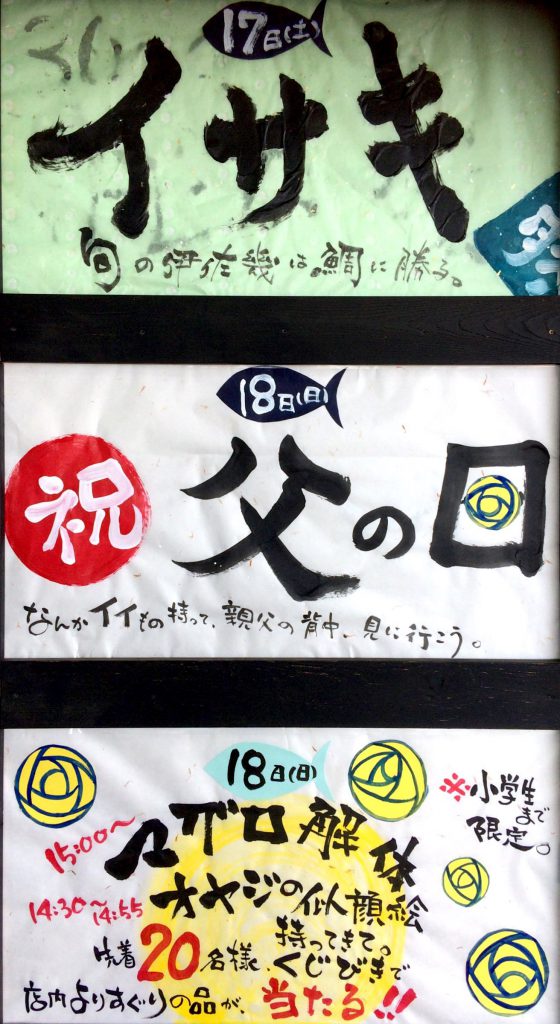 17日(土)
イサキ
旬の伊佐幾は鯛に勝る。
18日(日)
祝
父の日
なんかイイもの持って、親父の背中、見に行こう。
18日(日)
※小学生まで限定。
15:00〜
マグロ解体
14:30〜14:55
オヤジの似顔絵
先着20名様、持ってきて。くじびきで
店内よりすぐりの品が、当たる!!